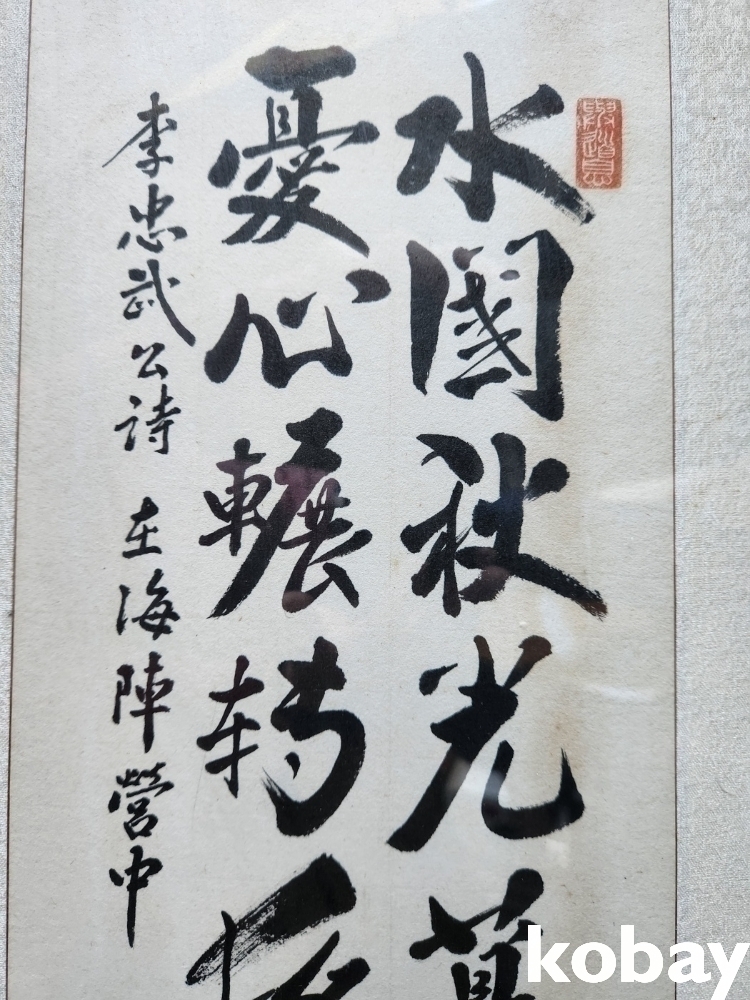 水國秋光暮
憂心輾轉夜
李忠武公詩 在海陣營中
kobay